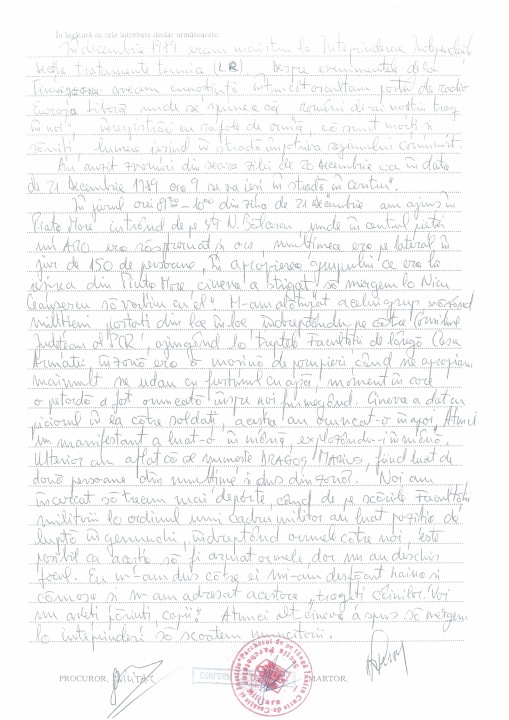 În legătură cu cele întrebate declar următoarele:
În decembrie 1989 eram maistru la Întreprinderea Independența
secția tratamente termice (LR). Despre evenimentele de la
Timișoara aveam cunoștință întrucât ascultam postul de radio
Europa Liberă unde se spunea că români de-ai noștri trag
în noi, înregistrări cu rafale de armă, că sunt morți și
răniți, lumea ieșind în stradă împotriva regimului comunist.
Am auzit zvonuri din seara zilei de 20 decembrie ca în data
de 21 decembrie 1989 ora 9 se va ieși în stradă în centru".
În jurul orei 09 30 - 10 00 din ziua de 21 decembrie am ajuns în
Piața Mare intrând de pe str N. Bălcescu unde în centrul pieții
un ARO era răsturnat și ars, mulțimea era pe lateral în
jur de 150 de persoane. În apropierea grupului ce era la
ieșirea din Piața Mare cineva a strigat să mergem la Nicu
Ceaușescu să vorbim cu el" M-am alăturat acelui grup văzând
milițieni postați din loc în loc îndreptându-ne către Comitetul
Județean al PCR, ajungând la treptele Facultății de lângă Casa
Armatei. În zonă era o mașină de pompieri, când ne apropiam
mai mult ne udau cu furtunul cu apă, moment în care
o petardă a fost aruncată înspre noi fumegând. Cineva a dat cu
piciorul în ea către soldați, aceștia au aruncat-o înapoi. Atunci
un manifestant a luat-o în mână, explodându-i în mână.
Ulterior am aflat că se numește DRAGOȘ MARIUS, fiind luat de
două persoane din mulțime și dus din zonă. Noi am
încercat să trecem mai departe, când de pe scările Facultății
militarii la ordinul unui cadru militar au luat poziția de
luptă în genunchi, îndreptând armele către noi, este
posibil ca aceștia să fi armat armele, dar nu au deschis
focul. Eu m-am dus către ei mi-am desfăcut haina și
cămașa și m-am adresat acestora "trageți câinilor. Voi
nu aveți părinți, copii". Atunci altcineva a spus să mergem
la întreprinderi să scoatem muncitorii.
PROCUROR, MILITAR
CONFORM
MARTOR,